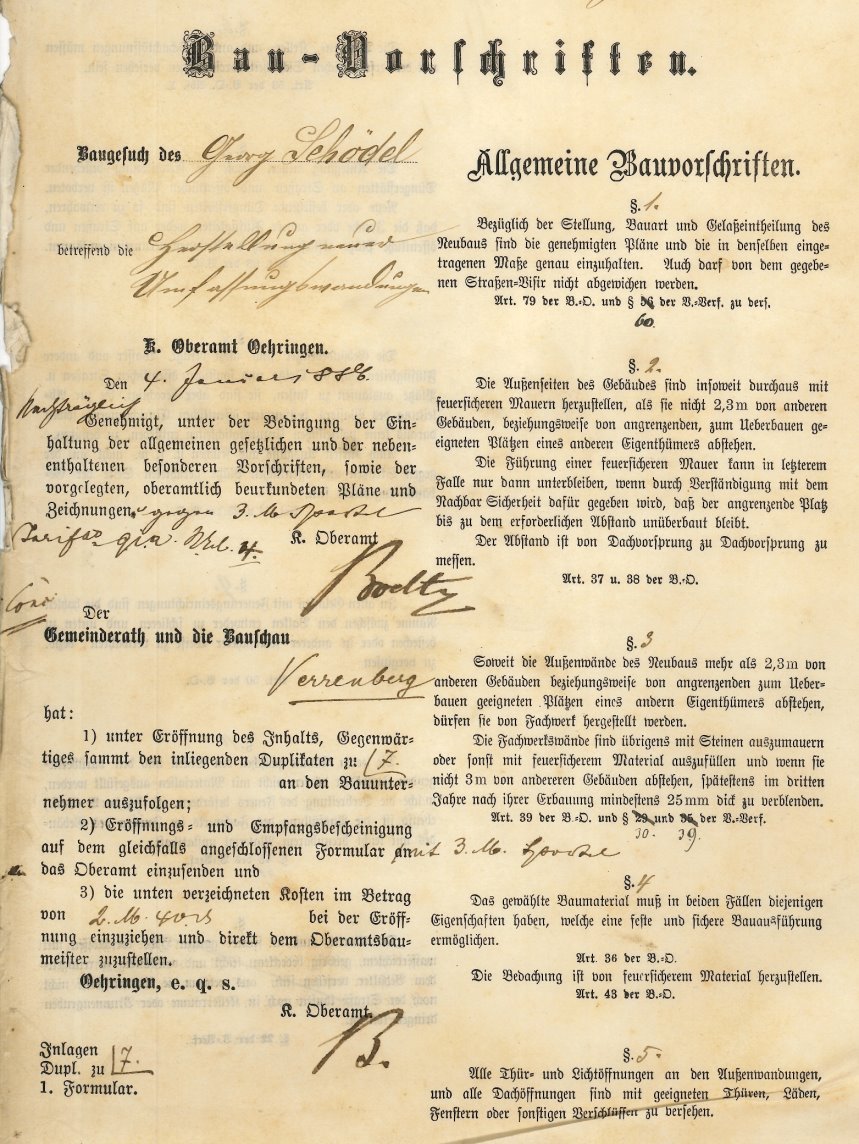 Bau-Vorschriften.
Baugesuch des Georg Schödel
betreffend die Herstellung neuer
Umfassungswandungen
K. Oberamt Oehringen.
Den 4. Januar 1886.
Nachträglich
Genehmigt, unter der Bedingung der Ein-
haltung der allgemeinen gesetzlichen und der neben-
enthaltenen besonderen Vorschriften, sowie der
vorgelegten, oberamtlich beurkundeten Pläne und
Zeichnungen, gegen 3. M Sportel
Tarif 4.
K. Oberamt
Der
Gemeinderath und die Bauschau
Verrenberg
hat:
1) unter Eröffnung des Inhalts, Gegenwär-
tiges sammt den inliegenden Duplikaten zu 7.
an den Bauunter-
nehmer auszufolgen;
2) Eröffnungs- und Empfangsbescheinigung
auf dem gleichfalls angeschlossenen Formular an mit 3. M. Sportel
das Oberamt einzusenden und
3) die unten verzeichneten Kosten im Betrag
von 2. M. 40 bei der Eröff-
nung einzuziehen und direkt dem Oberamtsbau-
meister zuzustellen.
Oehringen, e. q. s.
K. Oberamt.
B.
Inlagen
Dupl. zu 7.
1. Formular.
Allgemeine Bauvorschriften.
§. 1.
Bezüglich der Stellung, Bauart und Gelaßeintheilung des
Neubaus sind die genehmigten Pläne und die in denselben einge-
tragenen Maße genau einzuhalten. Auch darf von dem gegebe-
nen Straßen-Visir nicht abgewichen werden.
Art. 79 der B.-O. und § der V.-Verf. zu ders.
60.
§. 2.
Die Außenseiten des Gebäudes sind insoweit durchaus mit
feuersicheren Mauern herzustellen, als sie nicht 2,3 m von anderen
Gebäuden, beziehungsweise von angrenzenden, zum Ueberbauen ge-
eigneten Plätzen eines anderen Eigenthümers abstehen.
Die Führung einer feuersicheren Mauer kann in letzterem
Falle nur dann unterbleiben, wenn durch Verständigung mit dem
Nachbar Sicherheit dafür gegeben wird, daß der angrenzende Platz
bis zu dem erforderlichen Abstand unüberbaut bleibt.
Der Abstand ist von Dachvorsprung zu Dachvorsprung zu
messen.
Art. 37 u. 38 der B.-O.
§. 3
Soweit die Außenwände des Neubaus mehr als 2,3 m von
anderen Gebäuden beziehungsweise von angrenzenden zum Ueber-
bauen geeigneten Plätzen eines andern Eigenthümers abstehen,
dürfen sie von Fachwerk hergestellt werden.
Die Fachwerkswände sind übrigens mit Steinen auszumauern
oder sonst mit feuersicherem Material auszufüllen und wenn sie
nicht 3 m von andereren Gebäuden abstehen, spätestens im dritten
Jahre nach ihrer Erbauung mindestens 25 mm dick zu verblenden.
Art. 39 der B.-O. und § 29 und 35 der V.-Verf.
30. 39.
§. 4
Das gewählte Baumaterial muß in beiden Fällen diejenigen
Eigenschaften haben, welche eine feste und sichere Bauausführung
ermöglichen.
Art. 36 der B.-O.
Die Bedachung ist von feuersicherem Material herzustellen.
Art. 43 der B.-O.
§. 5.
Alle Thür- und Lichtöffnungen an den Außenwandungen,
und alle Dachöffnungen sind mit geeigneten Thüren, Läden,
Fenstern oder sonstigen Verschlüssen zu versehen.